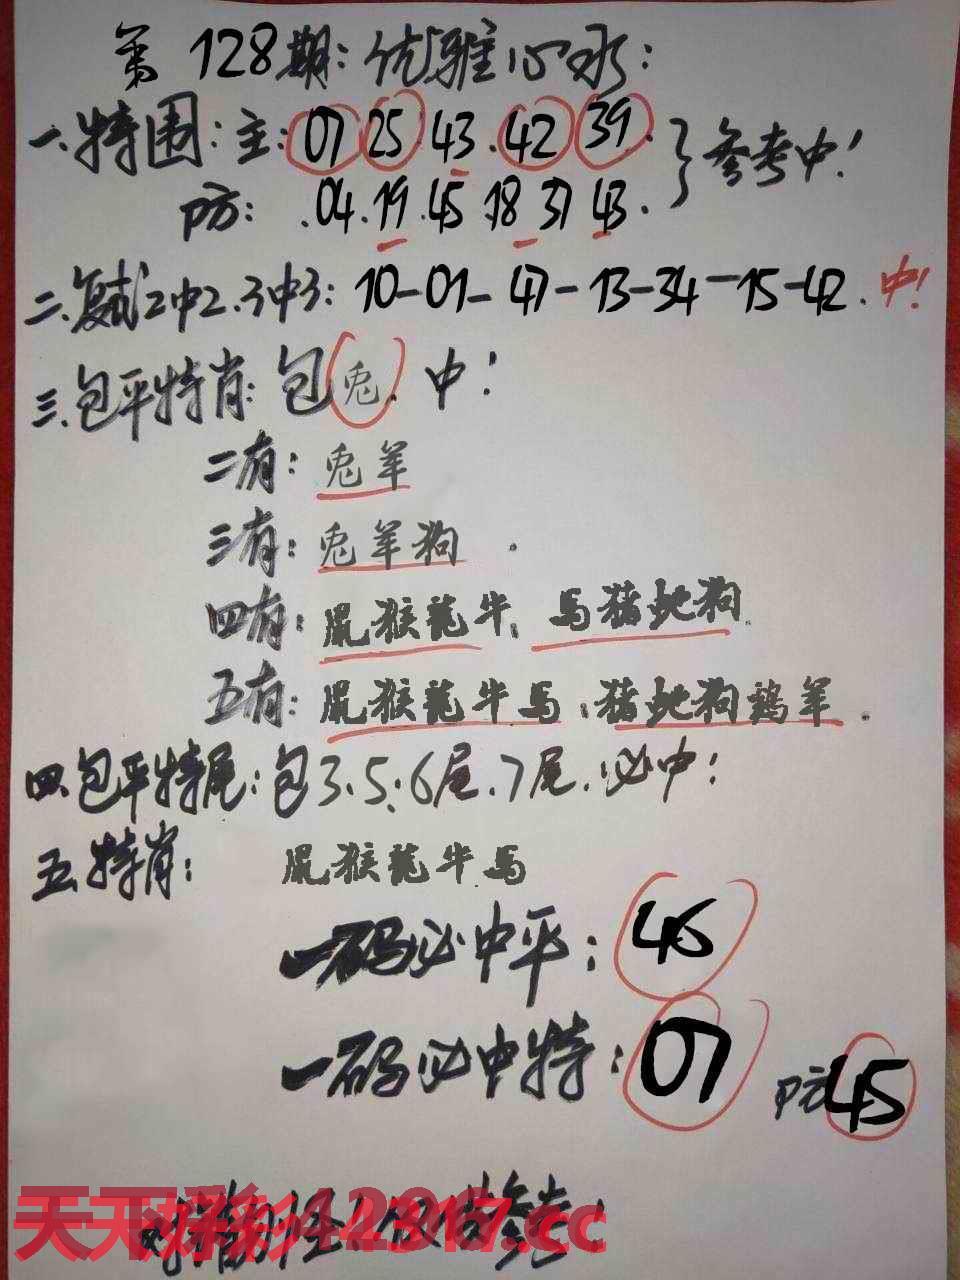 第128期:优雅心水:
一.特围:主:07 25 43.42 39.}参考中!
防:.04.19.45.18 31 43.
二.复式2中2.3中3:10-01-47-13-34-15-42.中!
三.包平特肖:包兔.中!
二有:兔羊
三有:兔羊狗.
四有:鼠猴龍牛.馬猪蛇狗
五有:鼠猴龍牛馬.猪蛇狗鷄羊.
四.包平特尾:包3.5.6尾.7尾.必中!
五.特肖:鼠猴龍牛馬
一码必中平:46
一码必中特:07 防45
天下彩 12317.cc